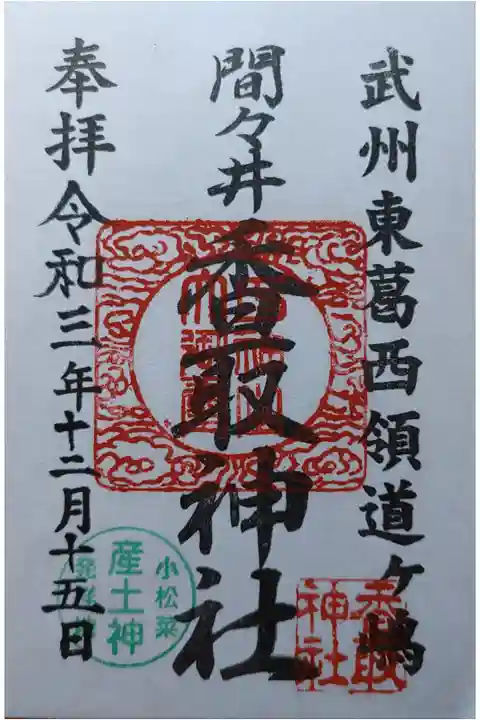 武州東葛西領道ヶ嶋
間々井
香取神社
奉拝令和三年十二月十五日
香取神社
小松菜
産土神